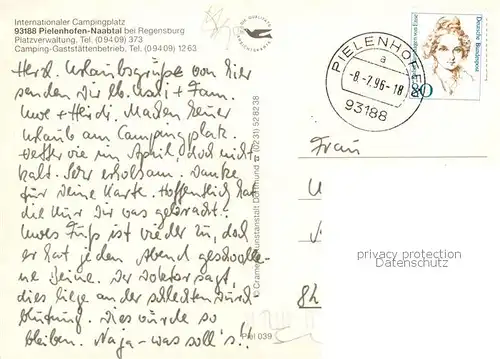 Internationaler Campingplatz
93188 Pielenhofen-Naabtal bei Regensburg
Platzverwaltung, Tel. (0 94 09) 373
Camping-Gaststättenbetrieb, Tel. (0 94 09) 12 63
Herzl. Urlaubsgrüße von hier
senden Dir
Uwe + Heidi. Machen heuer
Urlaub am Campingplatz.
Wetter wie im April, doch nicht
kalt. Sehr erholsam. Danke
für Deine Karte. Hoffentlich hat
die Kur Dir was gebracht.
Uwes Fuß ist wieder zu, doch
er hat jeden Abend geschwolle-
ne Beine. Der Doktor sagt,
dies liege an der schlechten Durch-
blutung. Dies würde so
bleiben. Naja - was soll's!!
Piel 039
© Cramers Kunstanstalt Dortmund ☎ (0231) 528238
PIELENHOFEN
a
-8.-7.96-18
93188
Deutsche Bundespost
Frau
privacy protection
Datenschutz